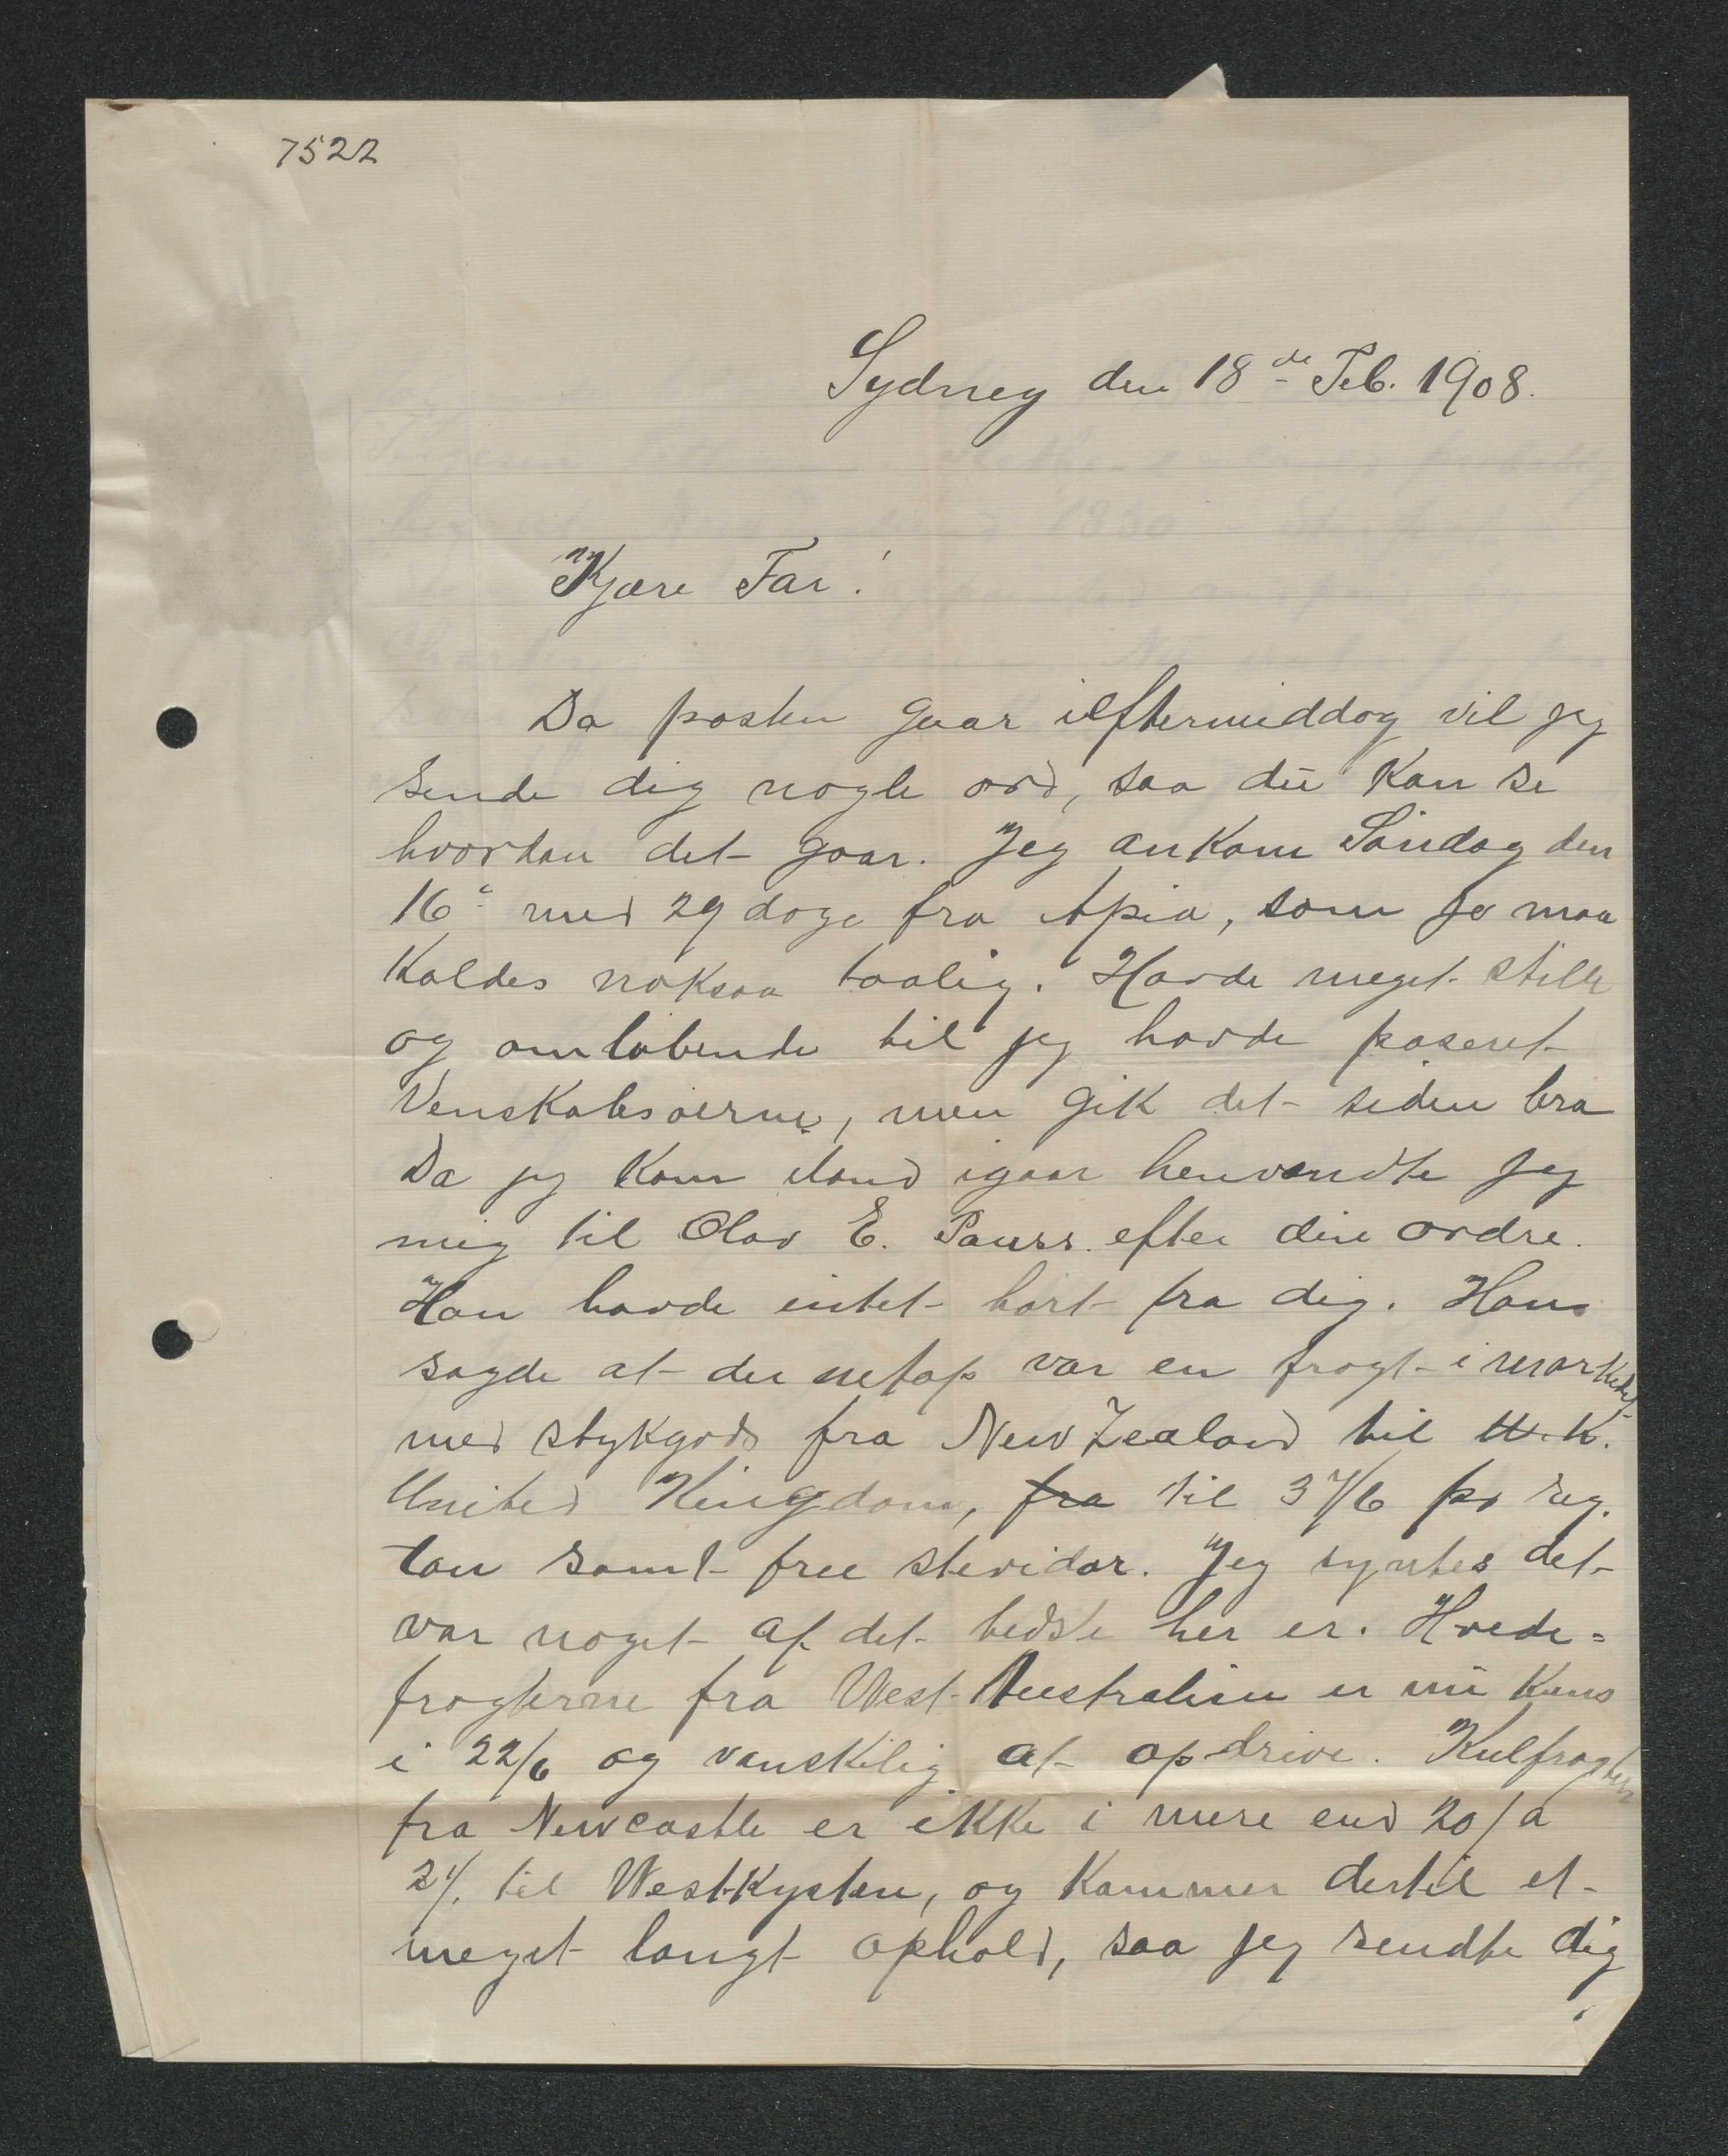 7522
Sydney den 18de Feb. 1908.
Kjære Far!
Da posten gaar ieftermiddag vil jeg
sende dig nogle ord, saa du kan se
hvordan det gaar. Jeg ankom Söndag den
16de med 29 dage fra Apia, som jo maa
kaldes noksaa taalig. Havde meget stille
og omløbende til jeg havde paseret
Venskabsøerne, men gik det siden bra
Da jeg kom iland igaar henvendte jeg
mig til Olav E. Pauss. efter din ordre.
Han havde intet hört fra dig. Hans
sagde at der netop var en fragt i markedet
med stykgods fra New Zealand til U.K.
United Kingdom, fra til 37/6 pr reg.
ton samt free stevidor. Jeg syntes det
var noget af det bedste her er. Hvede=
fragterne fra West-Australien er nu kuns
i 22/6 og vanskelig at opdrive. Kulfragten
fra Newcastle er ikke i mere end 20/ a
21/. til Westkysten, og kommer dertil et
meget langt ophold, saa jeg sendte dig